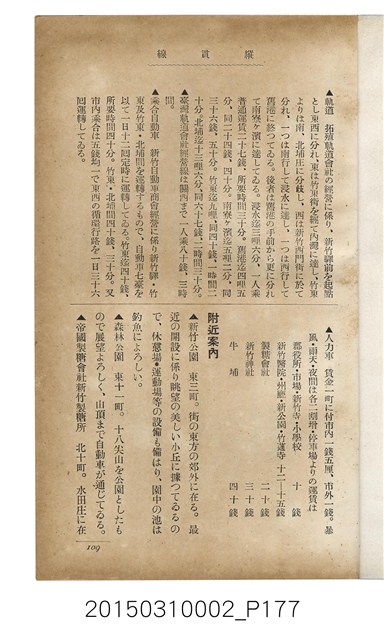 縦貫線
▲軌道　拓殖軌道會社の經營に係り、新竹驛前を起點
とし東西に分れ、東は竹東街を經て内灣に達し、竹東
よりは南、北埔庄に分岐し、西は新竹西門街に於て
分れ、一つは南行して浸水に達し、一つは西行して
舊港に終つてゐる。後者は舊港の手前から更に分れ
て南寮ヶ濱に達してゐる。浸水迄三哩六分、一人乘
普通運賃二十七錢、所要時間三十分。舊港迄四哩五
分、同二十四錢、四十分。南寮ヶ濱迄五哩二分、同
三十六錢、五十分。竹東迄九哩、同四十錢、一時間二
十分。北埔迄十三哩六分、同六十七錢、二時間三十分。
臺灣軌道會社經營線は關西まで一人乘八十錢、三時
間。
▲乘合自動車　新竹自動車商會經營に係り新竹驛・竹
東及竹東・北埔間を運轉するもので、自動車七臺を
以て一日十二回定時に運轉してゐる。竹東迄四十錢、
所要時間四十分。竹東・北埔間四十錢、三十分。又
市内乘合は五錢均一で東西の循環行路を一日三十六
回運轉してゐる。
▲人力車　賃金一町に付市内一錢五厘、市外一錢。暴
風・雨天・夜間は各二割增・停車場よりの運賃は
郡役所・市場・新竹寺・小學校　十錢
新竹醫院・州廳・新公園・竹蓮寺　十二―十五錢
製糖會社　二十錢
新竹神社　三十錢
牛埔　四十錢
附近案内
▲新竹公園　東三町。街の東方の郊外に在る。最
近の開設に係り眺望の美しい小丘に據つてゐるの
で、休憩場・運動場等の設備も備はり、園中の池は
釣魚によろしい。
▲森林公園　東十一町。十八尖山を公園としたも
ので展望よろしく、山頂まで自動車が通じてゐる。
▲帝國製糖會社新竹製糖所　北十町。水田庄に在
109
20150310002_P177